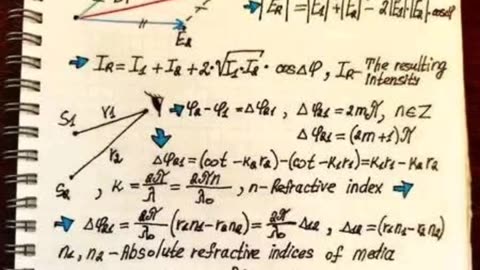 |E_R| = |E_1| + |E_2| - 2|E_1||E_2| · cosφ
E_2
I_R = I_1 + I_2 + 2·√(I_1·I_2) · cosΔφ, I_R - The resulting
intensity
S_1 r_1 φ_2 - φ_1 = Δφ_21, Δφ_21 = 2mπ, m∈Z
r_2 Δφ_21 = (2m+1)π
Δφ_21 = (ωt - K_2r_2) - (ωt - K_1r_1) = K_1r_1 - K_2r_2
S_2, K = 2π/λ = 2πn/λ_0, n - Refractive index
Δφ_21 = 2π/λ_0 (r_1n_1 - r_2n_2) = 2π/λ_0 · Δ_12, Δ_12 = (r_1n_1 - r_2n_2)
n_1, n_2 - Absolute refractive indices of media